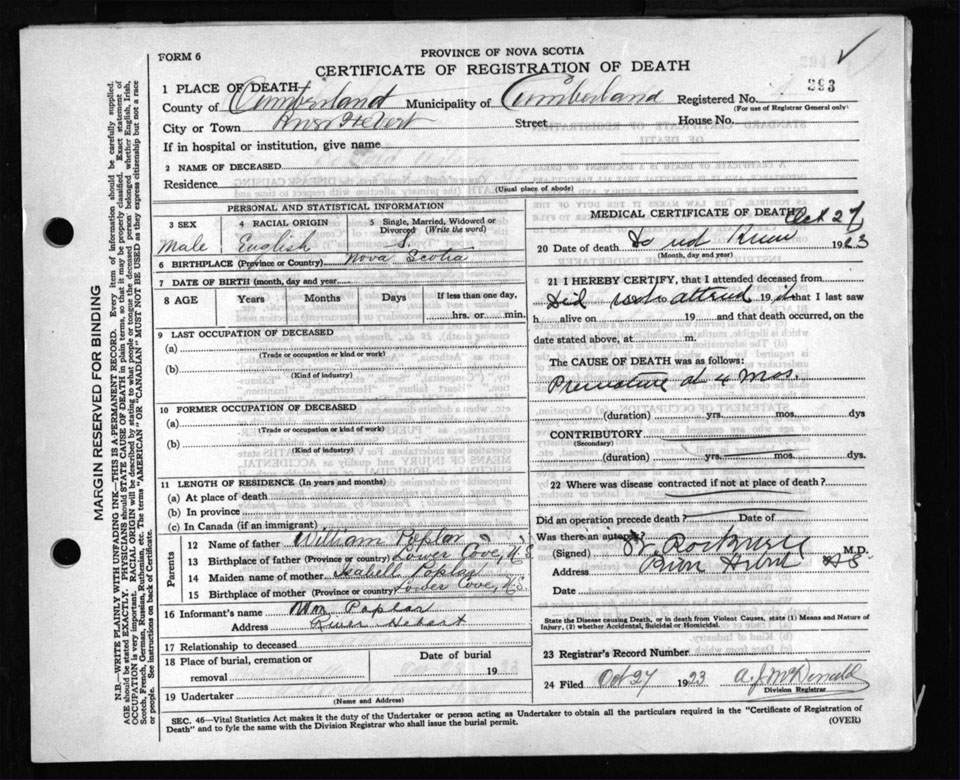 FORM 6
PROVINCE OF NOVA SCOTIA
CERTIFICATE OF REGISTRATION OF DEATH
393
1 PLACE OF DEATH
County of Cumberland Municipality of Cumberland Registered No.
(For use of Registrar General only)
City or Town River Hebert Street House No.
If in hospital or institution, give name
2 NAME OF DECEASED
Residence
(Usual place of abode)
PERSONAL AND STATISTICAL INFORMATION
3 SEX 4 RACIAL ORIGIN 5 Single, Married, Widowed or Divorced (Write the word)
Male English S.
6 BIRTHPLACE (Province or Country) Nova Scotia
7 DATE OF BIRTH (month, day and year)
8 AGE Years Months Days If less than one day,
hrs. or min.
9 LAST OCCUPATION OF DECEASED
(a)
(Trade or occupation or kind or work)
(b)
(Kind of industry)
10 FORMER OCCUPATION OF DECEASED
(a)
(Trade or occupation or kind or work)
(b)
(Kind of industry)
11 LENGTH OF RESIDENCE (In years and months)
(a) At place of death
(b) In province
(c) In Canada (if an immigrant)
Parents
12 Name of father William Poplar
13 Birthplace of father (Province or country) Lower Cove, N.S.
14 Maiden name of mother Isabell Poplar
15 Birthplace of mother (Province or country) Lower Cove, N.S.
16 Informant's name Wm Poplar
Address River Hebert
17 Relationship to deceased
18 Place of burial, cremation or removal
Date of burial
19
19 Undertaker
(Name and Address)
MEDICAL CERTIFICATE OF DEATH Oct 27
20 Date of death 1923
(Month, day and year)
21 I HEREBY CERTIFY, that I attended deceased from
Did not attend 19 that I last saw
h alive on 19 and that death occurred, on the
date stated above, at m.
The CAUSE OF DEATH was as follows:
Premature at 4 Mos.
(duration) yrs. mos. dys
CONTRIBUTORY
(Secondary)
(duration) yrs. mos. dys.
22 Where was disease contracted if not at place of death?
Did an operation precede death? Date of
Was there an autopsy?
(Signed) M.D.
Address River Hebert N.S.
Date
State the Disease causing Death, or in death from Violent Causes, state (1) Means and Nature of Injury, (2) whether Accidental, Suicidal or Homicidal.
23 Registrar's Record Number
24 Filed Oct 27 1923 A. J. McDonald
Division Registrar
SEC. 46—Vital Statistics Act makes it the duty of the Undertaker or person acting as Undertaker to obtain all the particulars required in the "Certificate of Registration of
Death" and to fyle the same with the Division Registrar who shall issue the burial permit. (OVER)
MARGIN RESERVED FOR BINDING
N.B.—WRITE PLAINLY WITH UNFADING INK—THIS IS A PERMANENT RECORD. Every item of information should be carefully supplied.
AGE should be stated EXACTLY. PHYSICIANS should STATE CAUSE OF DEATH in plain terms, so that it may be properly classified. Exact statement of
OCCUPATION is very important. RACIAL ORIGIN will be described by stating to what people or tongue the deceased person belonged whether English, Irish,
Scotch, French, German, Russian, Ruthenian, etc. The terms "AMERICAN" OR "CANADIAN" MUST NOT BE USED as they express citizenship but not a race
or people. See instructions on back of Certificate.